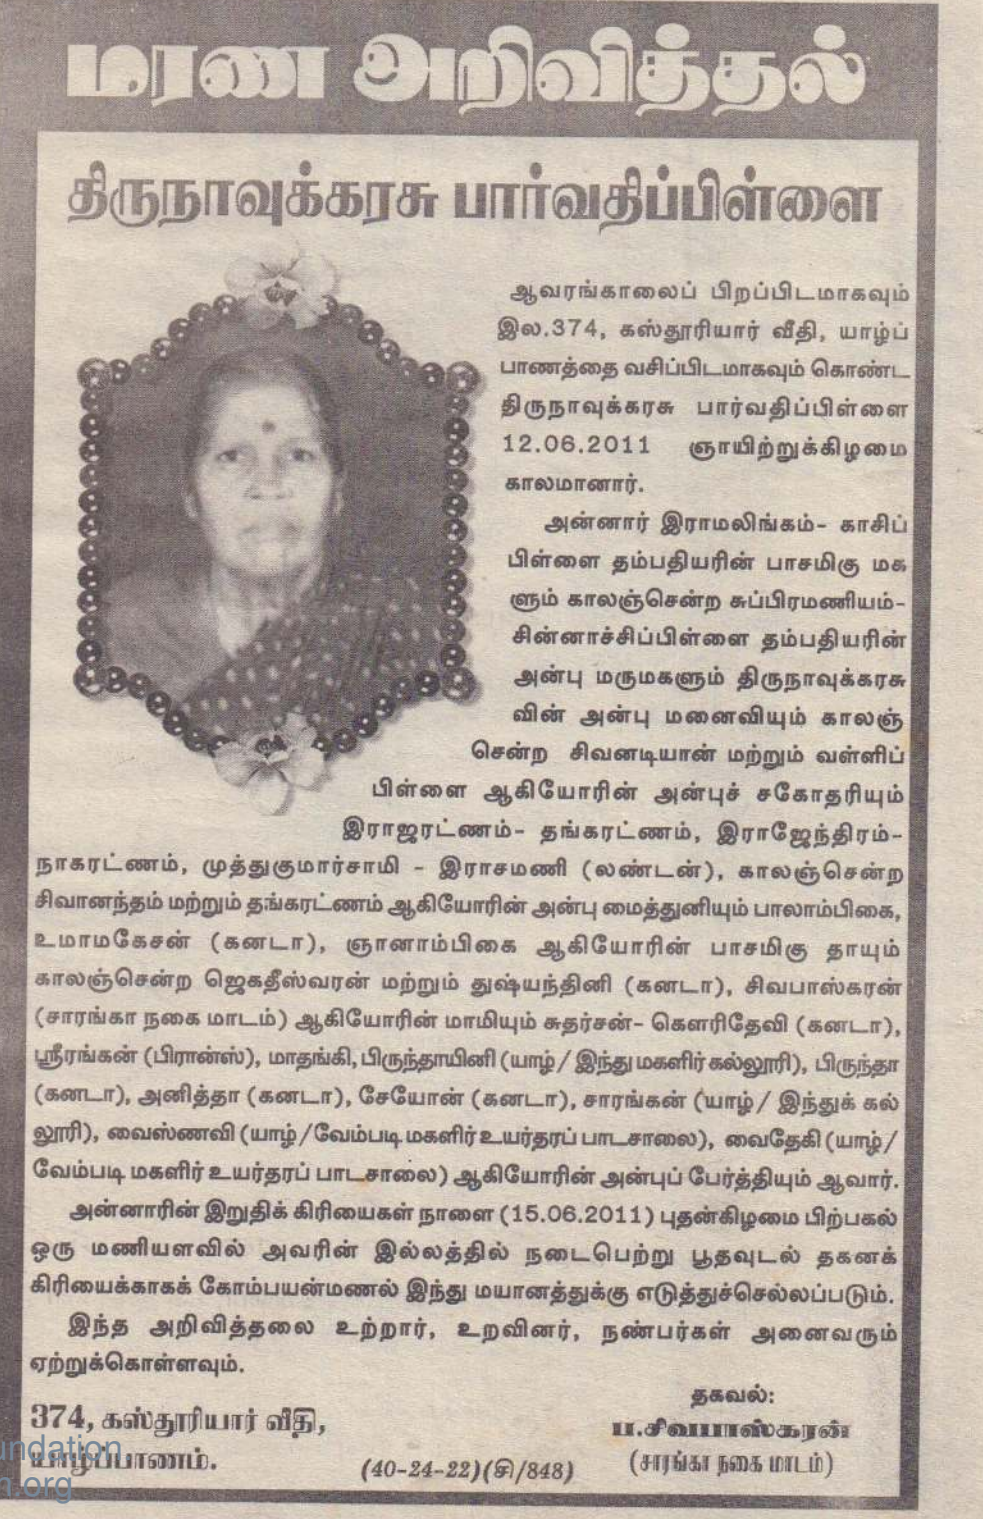 மரண அறிவித்தல்
திருநாவுக்கரசு பார்வதிப்பிள்ளை
ஆவரங்காலைப் பிறப்பிடமாகவும்
இல.374, கஸ்தூரியார் வீதி, யாழ்ப்
பாணத்தை வசிப்பிடமாகவும் கொண்ட
திருநாவுக்கரசு பார்வதிப்பிள்ளை
12.06.2011 ஞாயிற்றுக்கிழமை
காலமானார்.
அன்னார் இராமலிங்கம்- காசிப்
பிள்ளை தம்பதியரின் பாசமிகு மக
ளும் காலஞ்சென்ற சுப்பிரமணியம்-
சின்னாச்சிப்பிள்ளை தம்பதியரின்
அன்பு மருமகளும் திருநாவுக்கரசு
வின் அன்பு மனைவியும் காலஞ்
சென்ற சிவனடியான் மற்றும் வள்ளிப்
பிள்ளை ஆகியோரின் அன்புச் சகோதரியும்
இராஜரட்ணம்- தங்கரட்ணம், இராஜேந்திரம்-
நாகரட்ணம், முத்துகுமார்சாமி - இராசமணி (லண்டன்), காலஞ்சென்ற
சிவானந்தம் மற்றும் தங்கரட்ணம் ஆகியோரின் அன்பு மைத்துனியும் பாலாம்பிகை,
உமாமகேசன் (கனடா), ஞானாம்பிகை ஆகியோரின் பாசமிகு தாயும்
காலஞ்சென்ற ஜெகதீஸ்வரன் மற்றும் துஷ்யந்தினி (கனடா), சிவபாஸ்கரன்
(சாரங்கா நகை மாடம்) ஆகியோரின் மாமியும் சுதர்சன்- கௌரிதேவி (கனடா),
ஸ்ரீரங்கன் (பிரான்ஸ்), மாதங்கி, பிருந்தாயினி (யாழ்/ இந்து மகளிர் கல்லூரி), பிருந்தா
(கனடா), அனித்தா (கனடா), சேயோன் (கனடா), சாரங்கன் (யாழ்/ இந்துக் கல்
லூரி), வைஸ்ணவி (யாழ்/வேம்படி மகளிர் உயர்தரப் பாடசாலை), வைதேகி (யாழ்/
வேம்படி மகளிர் உயர்தரப் பாடசாலை) ஆகியோரின் அன்புப் பேர்த்தியும் ஆவார்.
அன்னாரின் இறுதிக் கிரியைகள் நாளை (15.06.2011) புதன்கிழமை பிற்பகல்
ஒரு மணியளவில் அவரின் இல்லத்தில் நடைபெற்று பூதவுடல் தகனக்
கிரியைக்காகக் கோம்பயன்மணல் இந்து மயானத்துக்கு எடுத்துச்செல்லப்படும்.
இந்த அறிவித்தலை உற்றார், உறவினர், நண்பர்கள் அனைவரும்
ஏற்றுக்கொள்ளவும்.
தகவல்:
374, கஸ்தூரியார் வீதி,
ப.சிவபாஸ்கரன்
யாழ்ப்பாணம்.
(40-24-22)(சி/848)
(சாரங்கா நகை மாடம்)
undation
n.org